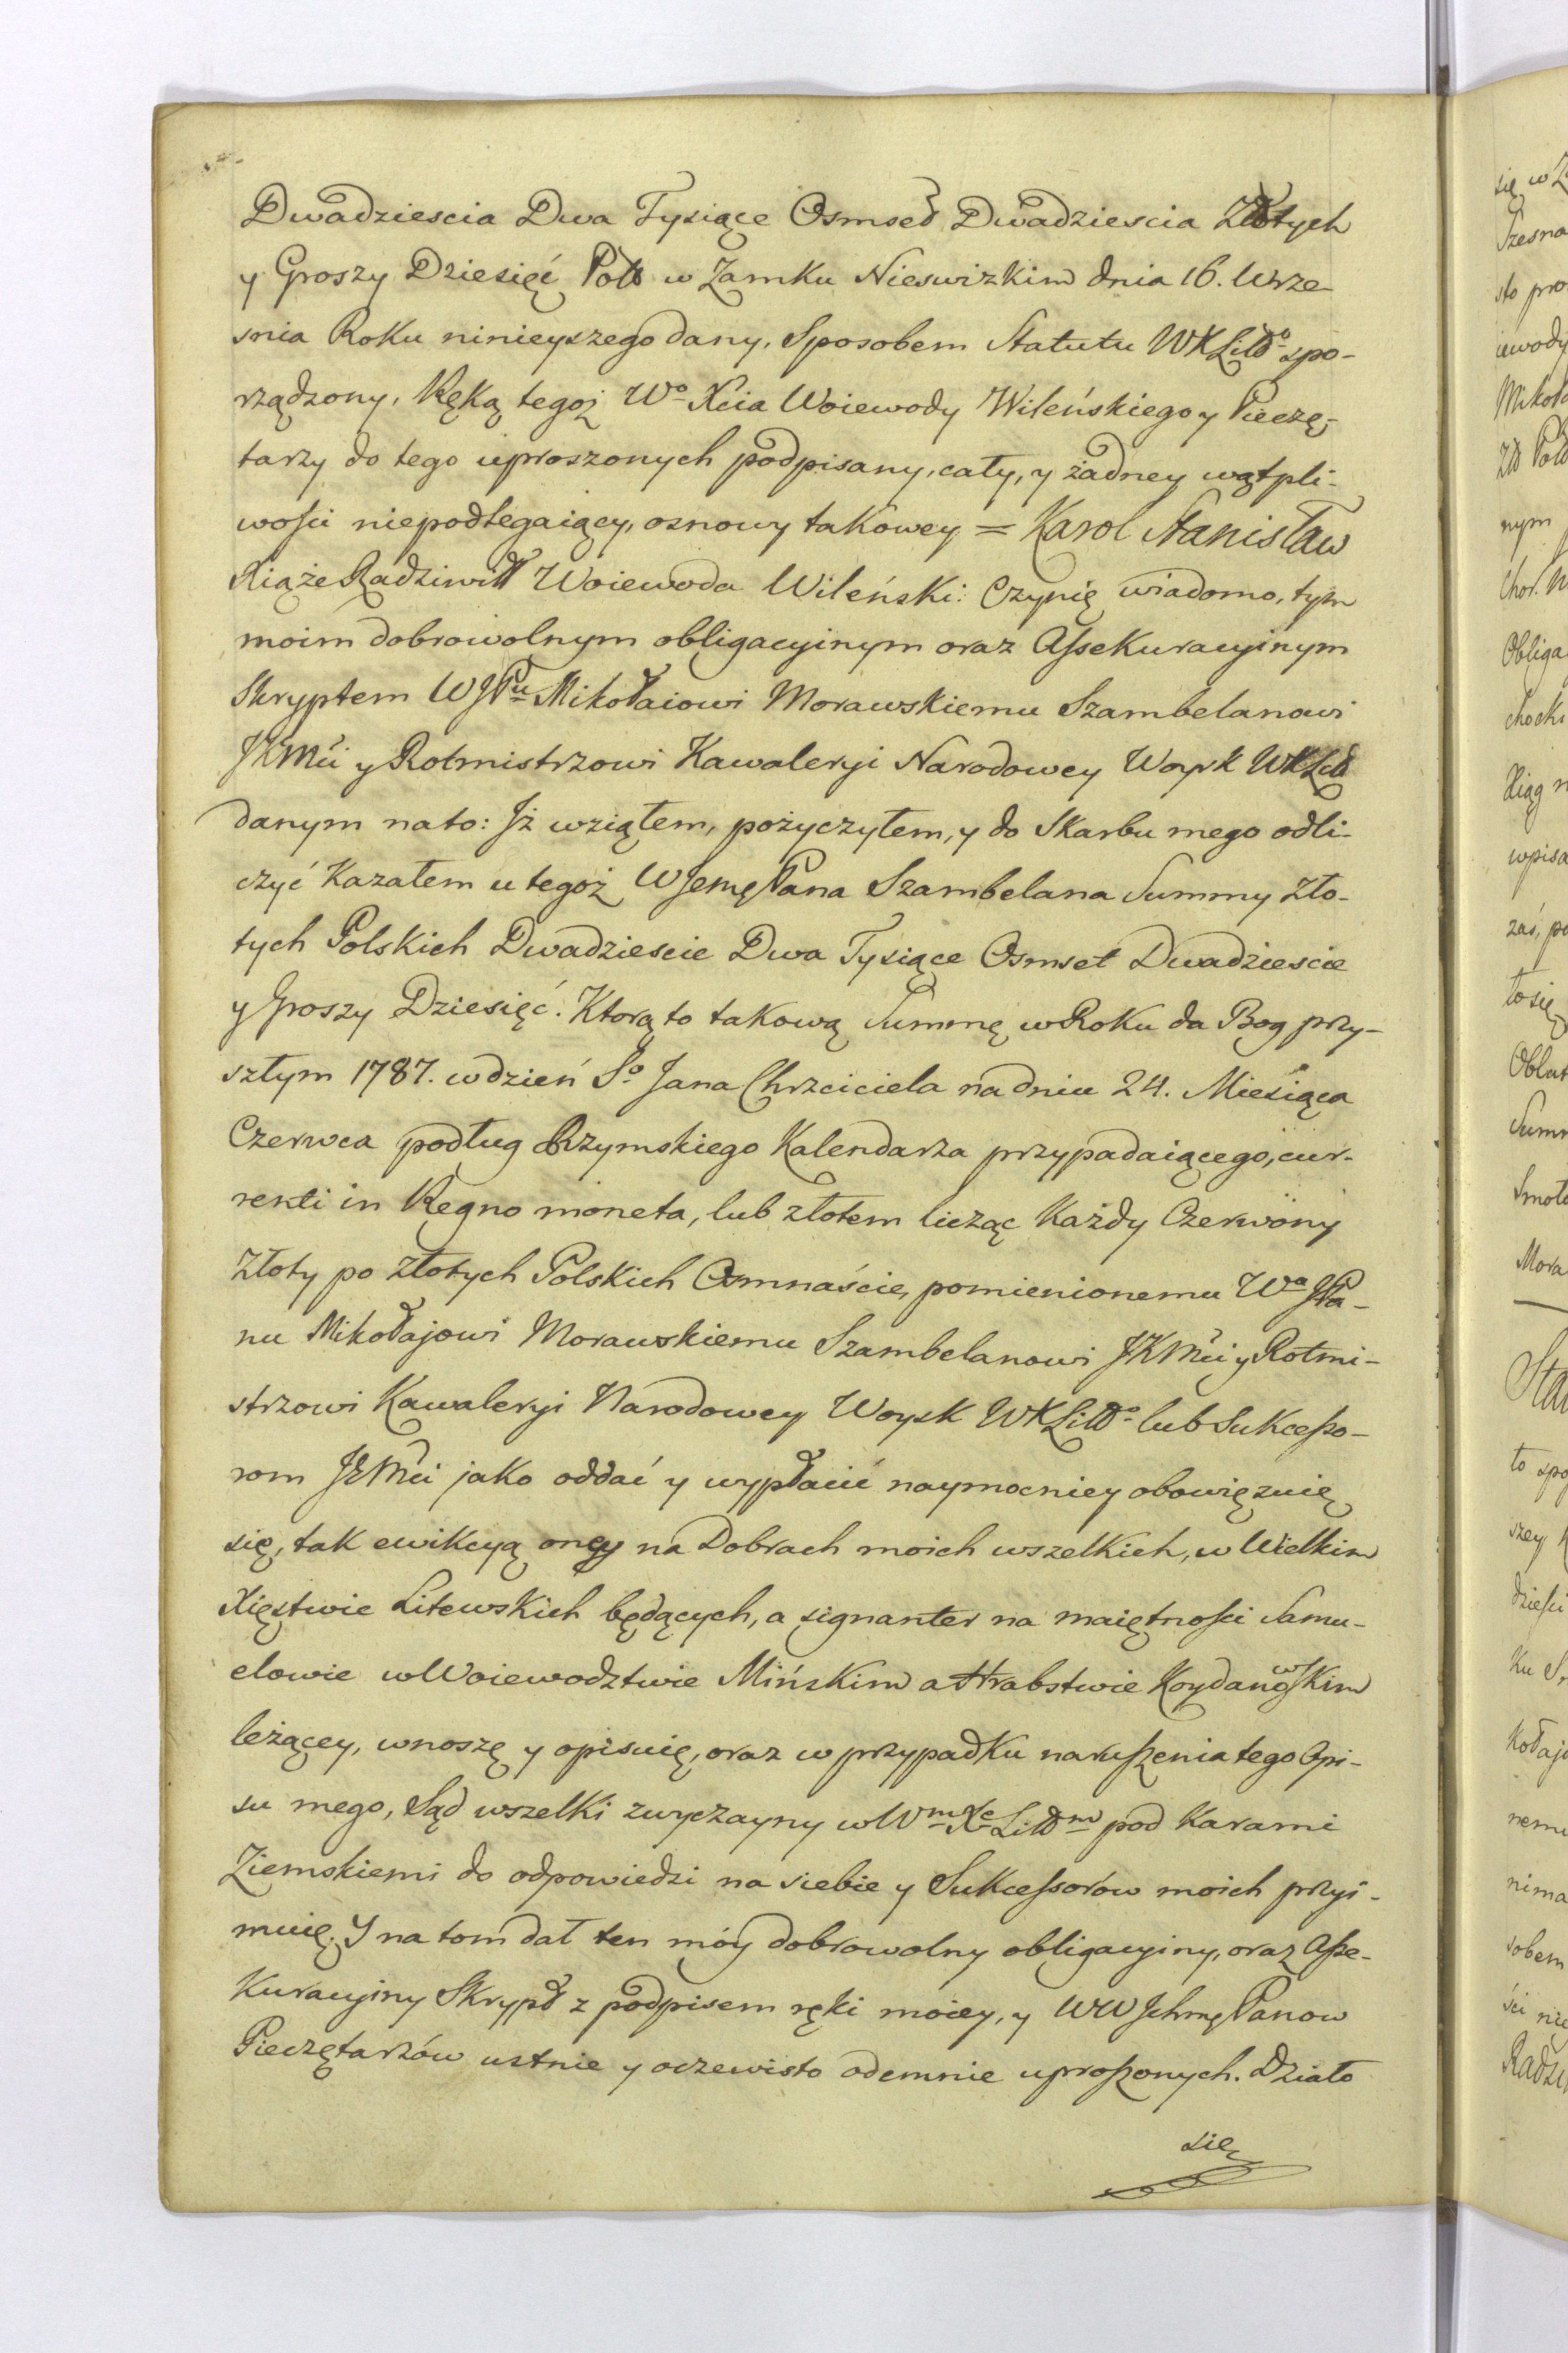 Dwadziescia Dwa Tysiące Osmset Dwadziescia Złotych
y Groszy Dziesięć Pols w Zamku Nieswizkim dnia 16. Wrze-
snia Roku ninieyszego dany, Sposobem Statutu WKLitto spo-
rządzony, Ręką tegoż Wo Xcia Woiewody Wileńskiego y Pieczę-
tarzy do tego uproszonych podpisany, cały, y żadney wątpli-
wości niepodlegaiący, osnowy takowey = Karol Stanisław
Xiąże Radziwiłł Woiewoda Wileński: Czynię wiadomo, tym
moim dobrowolnym obligacyinym oraz Assekuracyinym
Skryptem WJPu Mikołaiowi Morawskiemu Szambelanowi
JKMci y Rotmistrzowi Kawaleryi Narodowey Woysk WKLitt
danym nato: Jż wziąłem, pożyczyłem, y do Skarbu mego odli-
czyć Kazałem u tegoż WJemę Pana Szambelana Summy zło-
tych Polskich Dwadziescie Dwa Tysiące Osmset Dwadziescie
y Groszy Dziesięć. Ktorą to takową Summę w Roku da Bog przy-
szłym 1787. w dzień So Jana Chrzciciela na dniu 24. Miesiąca
Czerwca podług Rzymskiego Kalendarza przypadaiącego, cur-
renti in Regno moneta, lub złotem licząc Każdy Czerwony
Złoty po złotych Polskich Osmnaście, pomienionemu Wu JPa-
nu Mikołajowi Morawskiemu Szambelanowi JKMci y Rotmi-
strzowi Kawaleryi Narodowey Woysk WKLitto lub Sukcesso-
rom JEMci jako oddać y wypłacić naymocniey obowięzuię
się, tak ewikcyą oney na Dobrach moich wszelkich, w Wielkim
Xięstwie Litewskich będących, a signanter na maiętności Samu-
elowie w Woiewodztwie Mińskim a Hrabstwie Koydanowskim
leżącey, wnoszę y opisuię, oraz w przypadku naruszenia tego Opi-
su mego, Sąd wszelki zwyczayny w Wm Xe Littm pod Karami
Ziemskiemi do odpowiedzi na siebie y Sukcessorów moich przyi-
muię. Y na tom dał ten móy dobrowolny obligacyiny, oraz Asse-
Kuracyiny Skrypt z podpisem ręki moiey, y WW Jchmę Panow
Pieczętarzów ustnie y oczewisto odemnie uproszonych. Działo
się